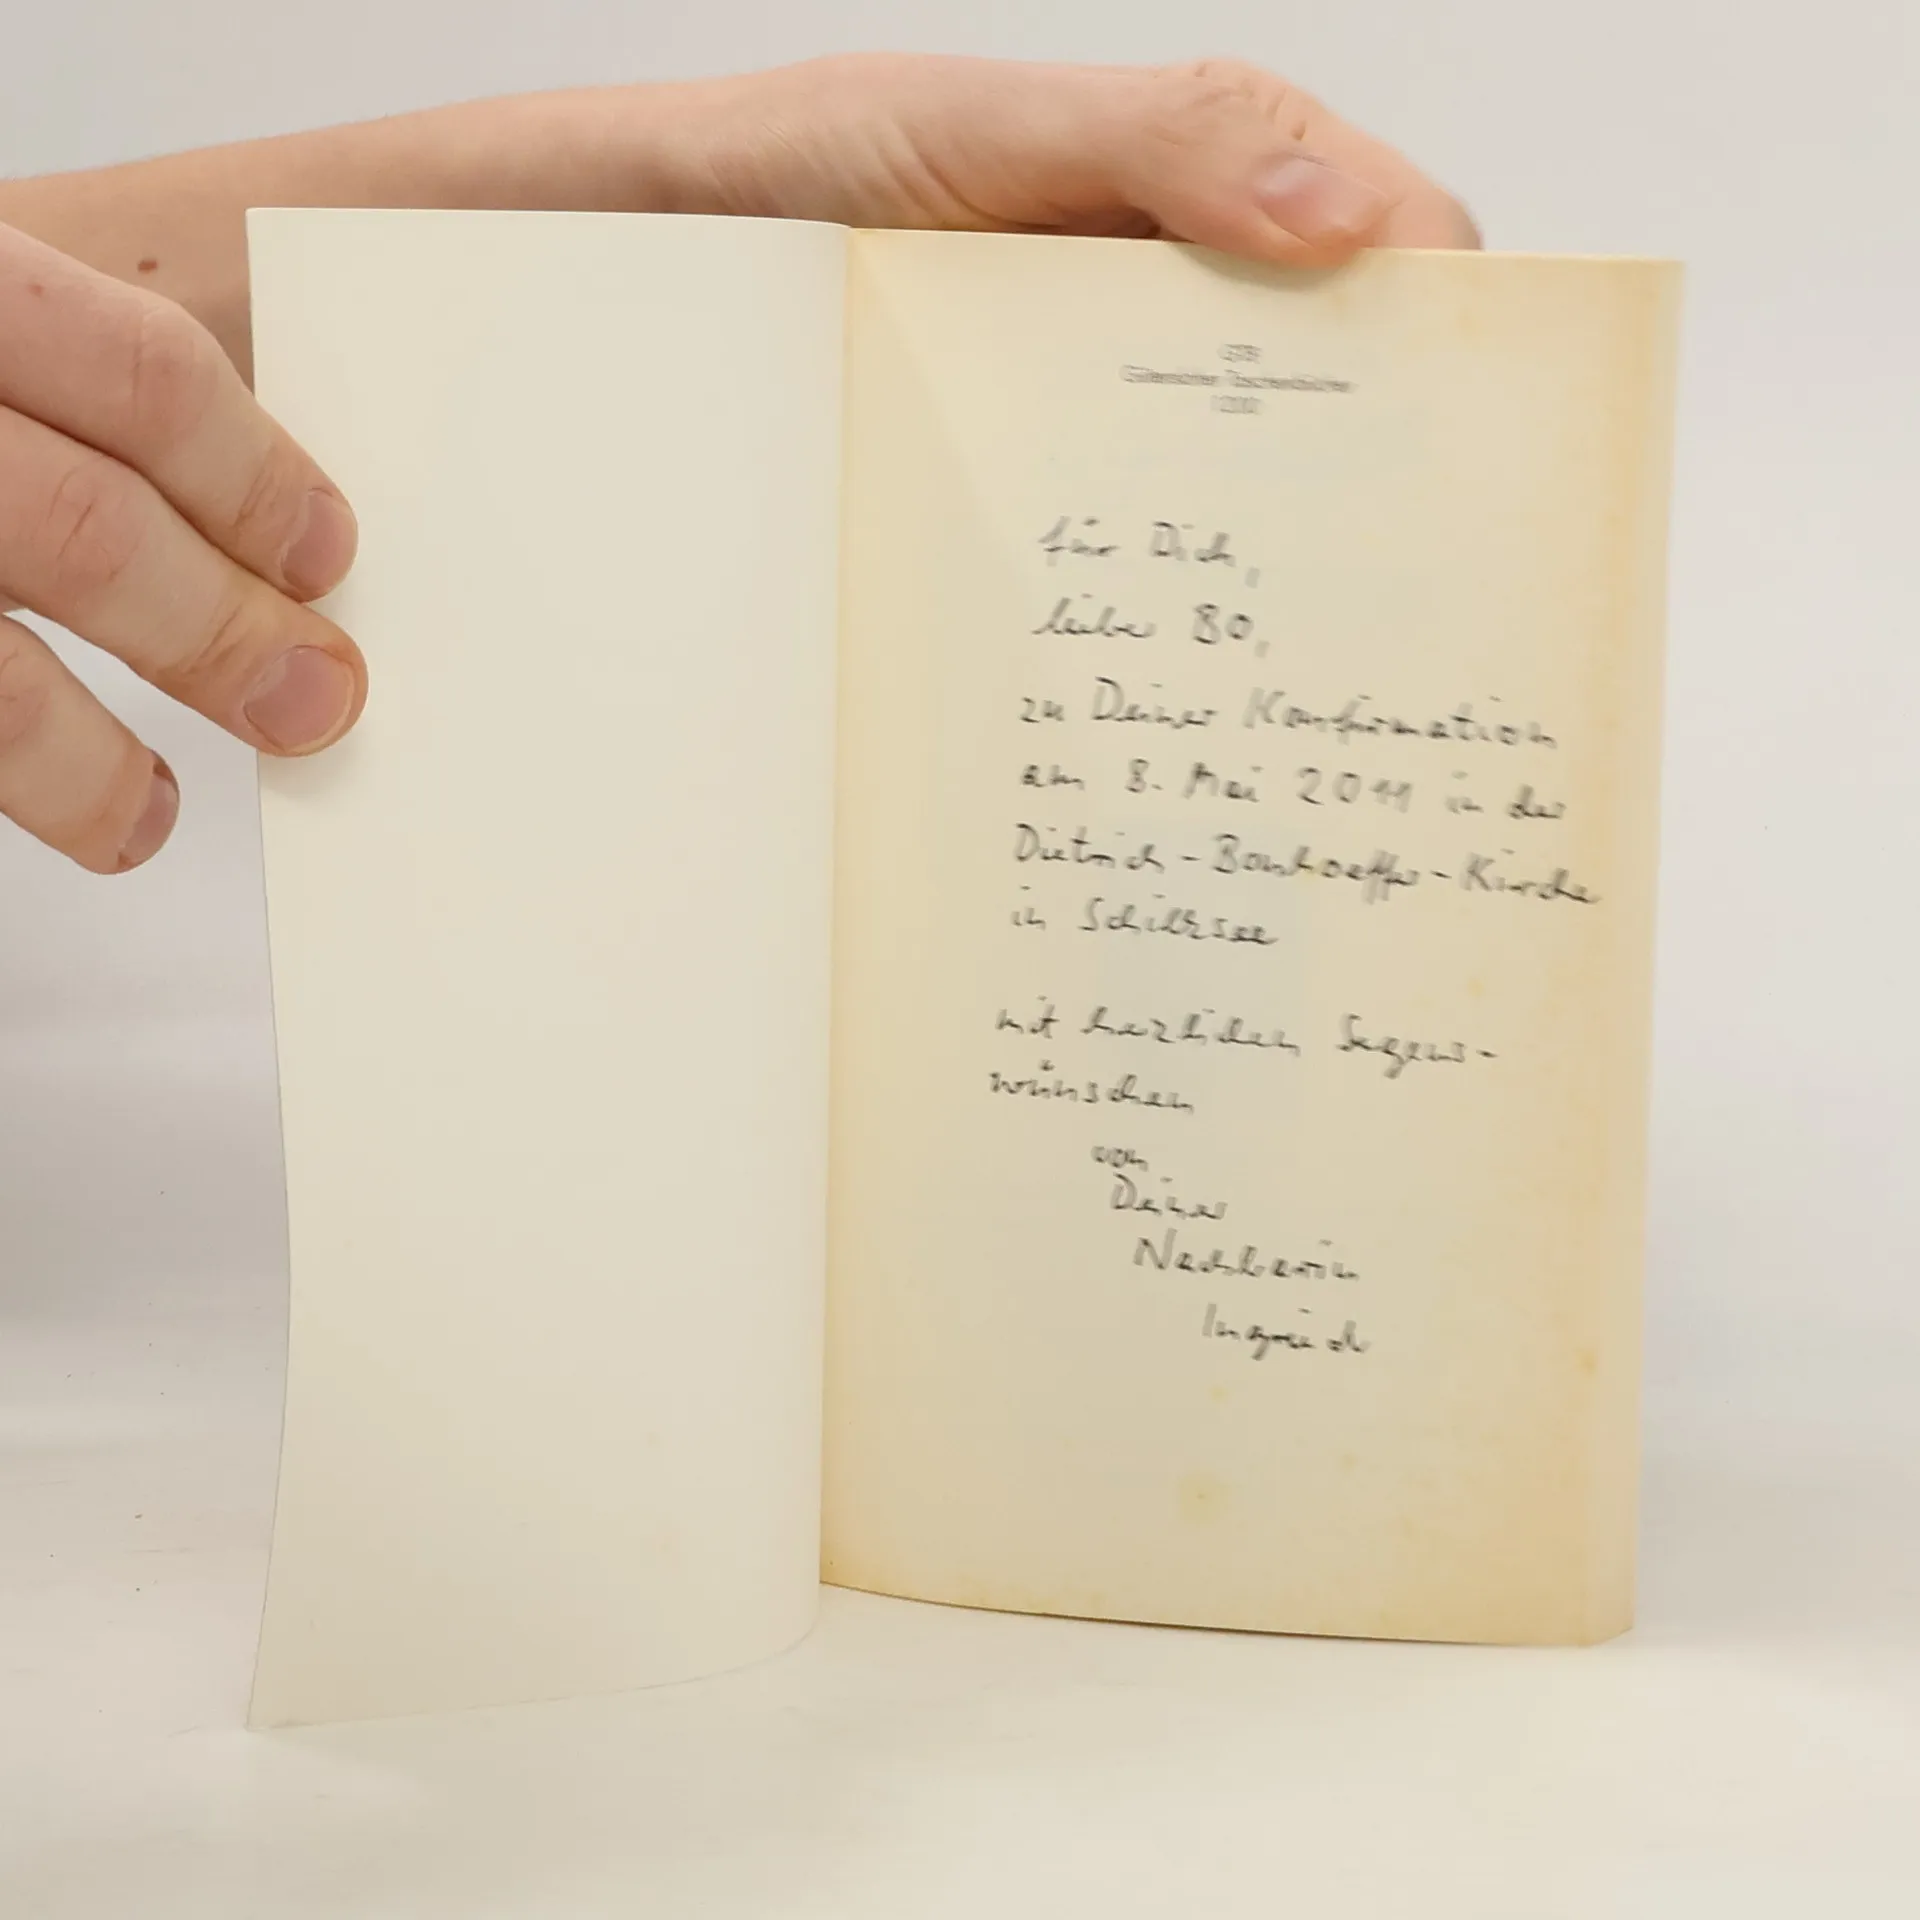 GTB
Gütersloher Taschenbücher
für Dich,
lieber BO,
zu Deiner Konfirmation
am 8. Mai 2011 in der
Dietrich-Bonhoeffer-Kirche
in Schilksee
mit herzlichen Segens-
wünschen
von
Deiner
Nachbarin
Ingrid